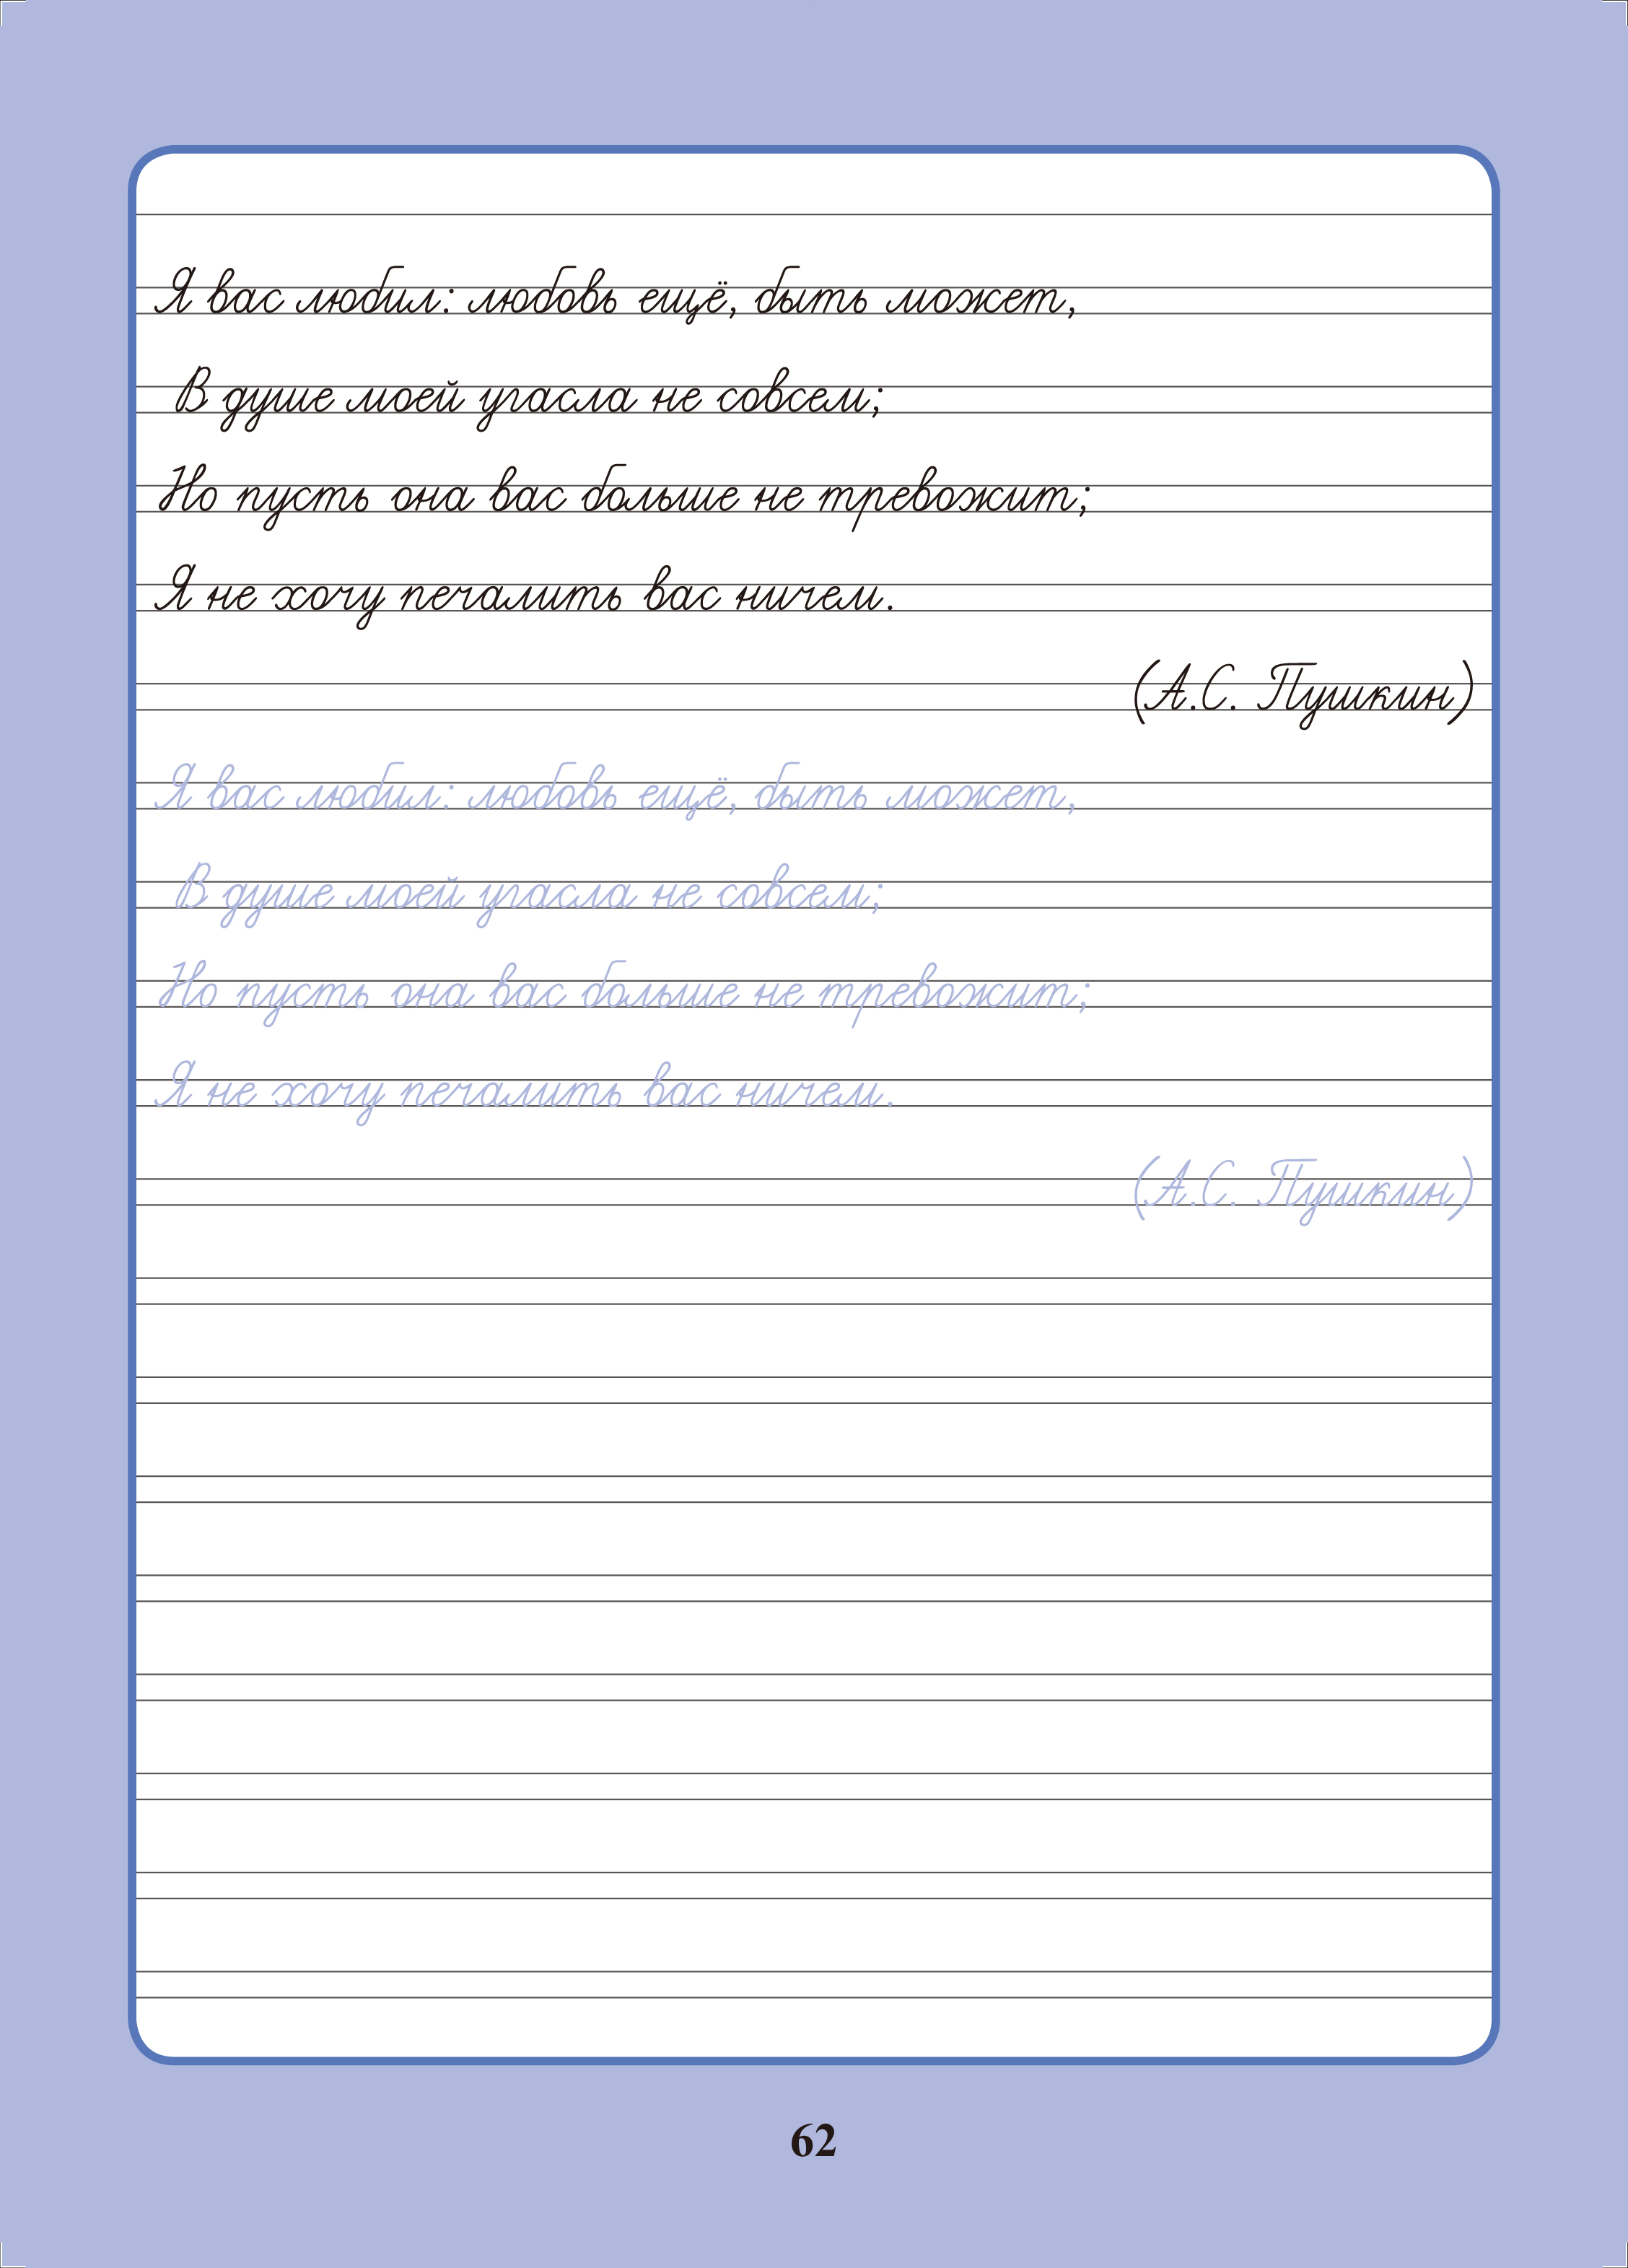 Я вас любил: любовь ещё, быть может,
В душе моей угасла не совсем;
Но пусть она вас больше не тревожит;
Я не хочу печалить вас ничем.
(А.С. Пушкин)
Я вас любил: любовь ещё, быть может,
В душе моей угасла не совсем;
Но пусть она вас больше не тревожит;
Я не хочу печалить вас ничем.
(А.С. Пушкин)
62